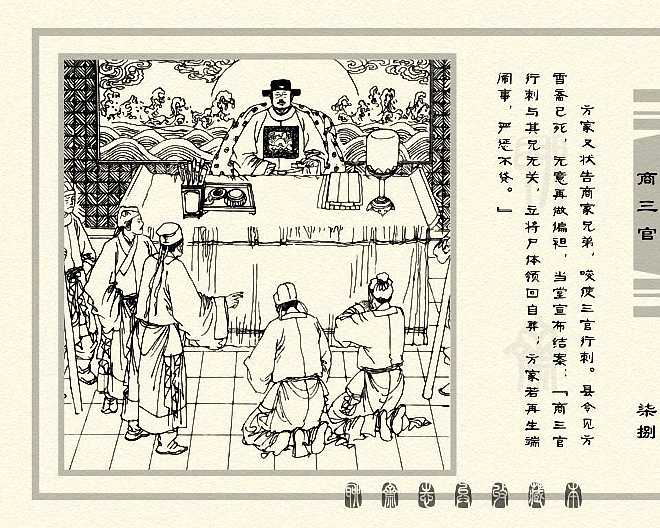 方家又状告商家兄弟，唆使三官行刺。县令见方
霄斋已死，无意再做偏袒，当堂宣布结案：『商三官
行刺与其兄无关，立将尸体领回自葬，方家若再生端
闹事，严惩不贷。』
商三官
柒捌